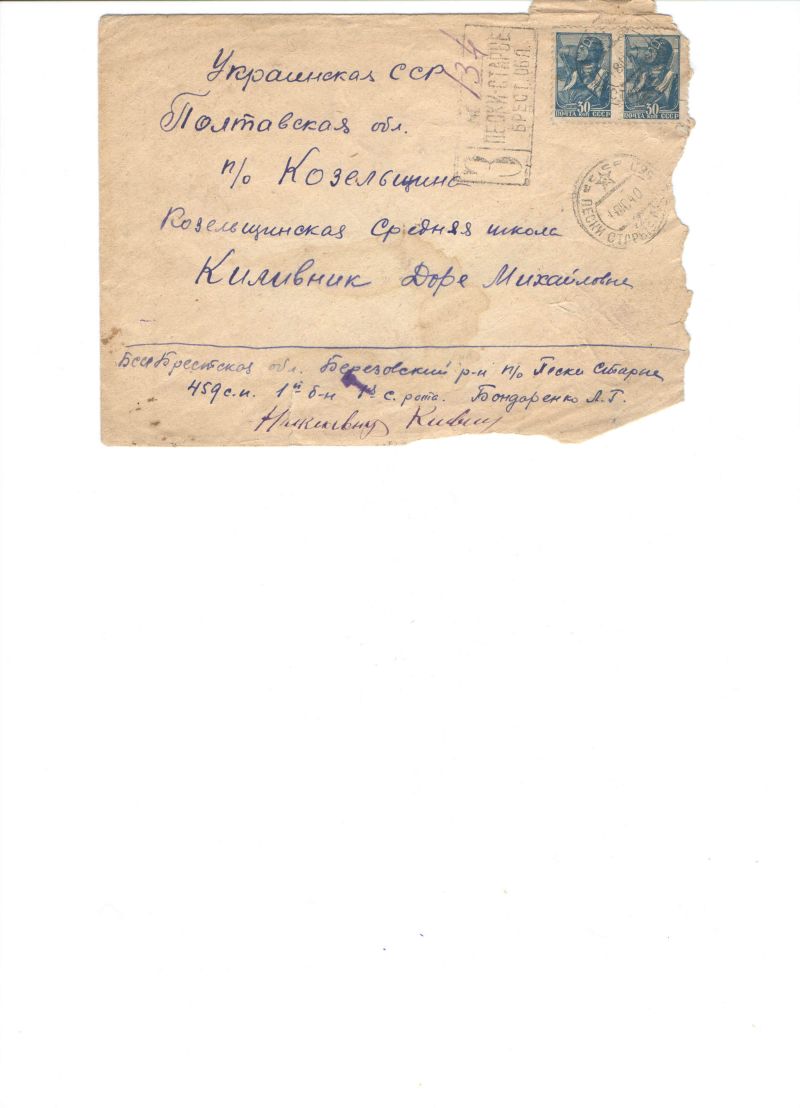 Украинская ССР
Полтавская обл.
п/о Козельщина
Козельщинская Средняя школа
Киливник Доре Михайловне
З
ПЕСКИ-СТАРЫЕ
БРЕСТ. ОБЛ.
№ 134
30 30
ПОЧТА КОП СССР ПОЧТА КОП СССР
ПЕСКИ СТАРЫЕ
Брестская обл. Березовский р-н п/о Пески Старые
459 с.п. 1й б-н с. рота. Бондаренко Л.Г.